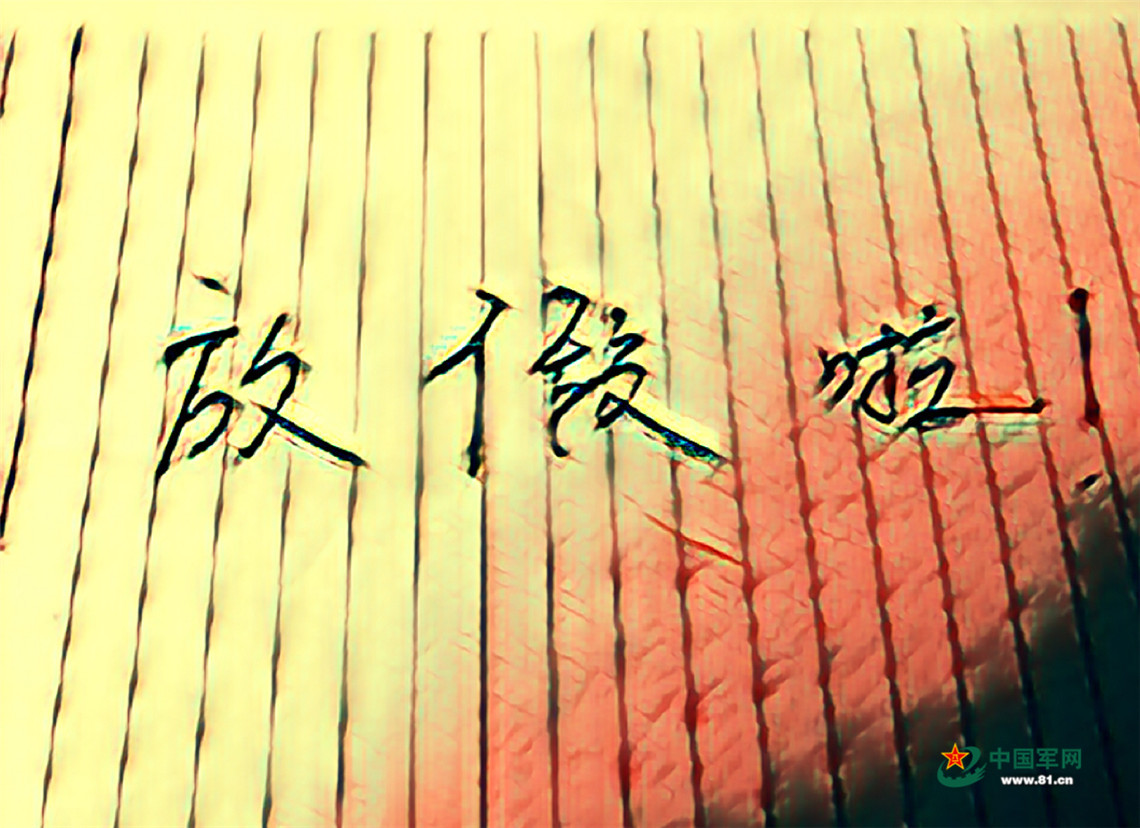 放假啦！
中国军网
www.81.cn